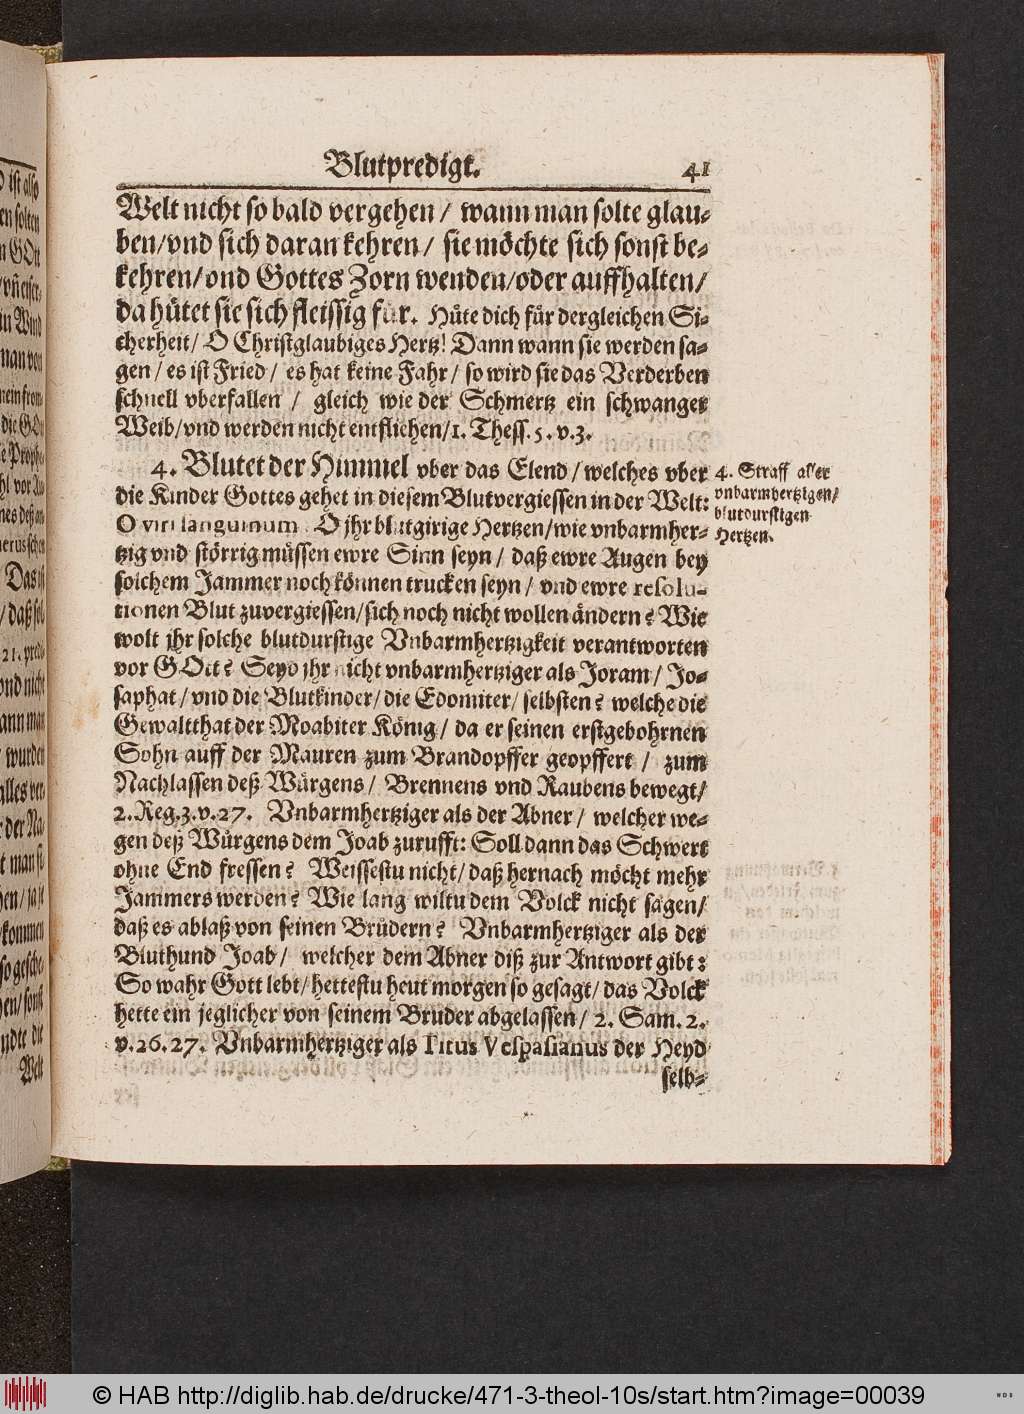 Blutpredigt. 41
Welt nicht so bald vergehen / wann man solte glau-
ben/vnd sich daran kehren / sie möchte sich sonst be-
kehren/vnd Gottes Zorn wenden/oder auffhalten/
da hütet sie sich fleissig für. Hüte dich für dergleichen Si-
cherheit / O Christglaubiges Hertz! Dann wann sie werden sa-
gen / es ist Fried / es hat keine Fahr / so wird sie das Verderben
schnell vberfallen / gleich wie der Schmertz ein schwanger
Weib/vnd werden nicht entfliehen/1. Thess. 5. v.3.
4. Blutet der Himmel vber das Elend / welches vber
die Kinder Gottes gehet in diesem Blutvergiessen in der Welt:
O viri sanguinum. O jhr blutgirige Hertzen/wie vnbarmher-
tzig vnd störrig müssen ewre Sinn seyn / daß ewre Augen bey
solchem Jammer noch können trucken seyn / vnd ewre resolu-
tionen Blut zuvergiessen/sich noch nicht wollen ändern? Wie
wolt jhr solche blutdurstige Vnbarmhertzigkeit verantworten
vor GOtt? Seyd jhr nicht vnbarmhertziger als Joram / Jo-
saphat / vnd die Blutkinder / die Edomiter / selbsten? welche die
Gewaltthat der Moabiter König / da er seinen erstgebohrnen
Sohn auff der Mauren zum Brandopffer geopffert / zum
Nachlassen deß Würgens / Brennens vnd Raubens bewegt/
2. Reg.3.v.27. Vnbarmhertziger als der Abner / welcher we-
gen deß Würgens dem Joab zurufft: Soll dann das Schwert
ohne End fressen? Weissestu nicht / daß hernach möcht mehr
Jammers werden? Wie lang wiltu dem Volck nicht sagen/
daß es ablaß von seinen Brüdern? Vnbarmhertziger als der
Bluthund Joab / welcher dem Abner diß zur Antwort gibt:
So wahr Gott lebt / hettestu heut morgen so gesagt / das Volck
hette ein jeglicher von seinem Bruder abgelassen / 2. Sam. 2.
v.26.27. Vnbarmhertziger als Titus Vespasianus der Heyd
selb-
4. Straff aller
vnbarmhertzigen/
blutdurstigen
Hertzen.
© HAB http://diglib.hab.de/drucke/471-3-theol-10s/start.htm?image=00039